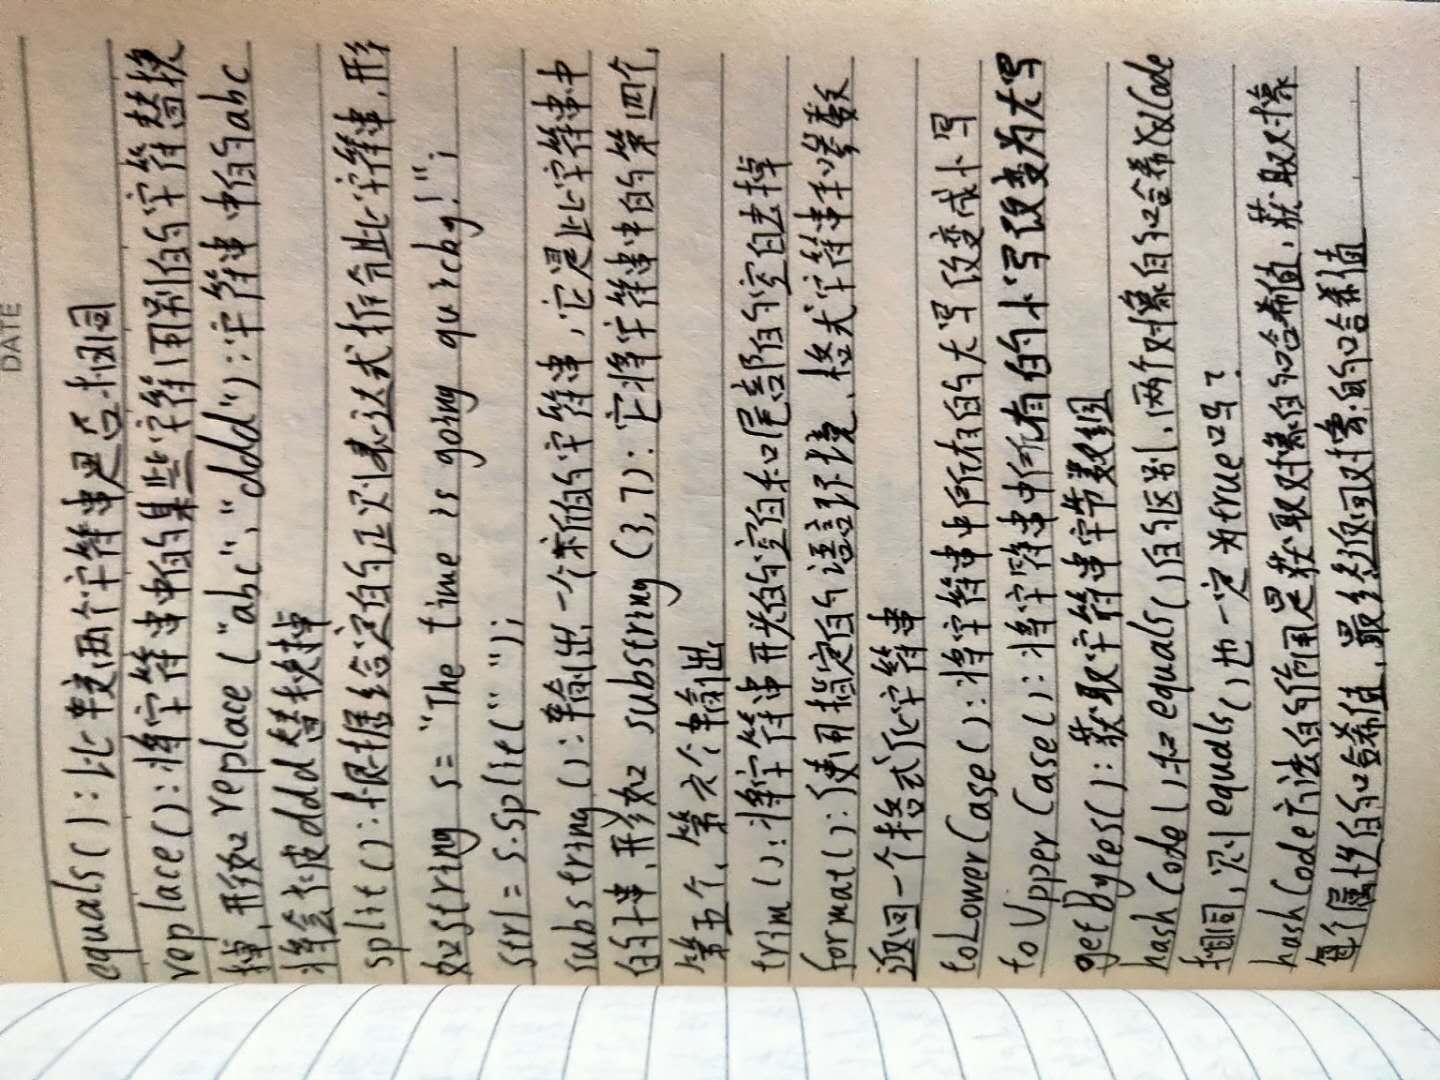 DATE
equals():比较两个字符串是否相同
replace():将字符串中的某些字符用别的字符替换
掉,形如replace("abc","ddd"):字符串中的abc
将会被ddd替换掉
split():根据给定的正则表达式拆分此字符串,形
如string s="The time is going qu
str1=s.split(" ");
substring():输出一个新的字符串,它是此字符串中
的子串,形如 substring(3,7):它将字符串中的第四个,
第五个,第六个输出
trim():将字符串开头的空白和尾部的空白去掉
format():使用指定的语言环境、格式字符串和参数
返回一个格式化字符串
toLowerCase():将字符串中所有的大写改变成小写
toUpperCase():将字符串中所有的小写改变为大写
getBytes():获取字符串字节数组
hashCode()和equals()的区别,两个对象的哈希值Code
相同,则equals()也一定为true吗?
hashCode方法的作用是获取对象的哈希值,获取对象
每个属性的哈希值,最终返回对象的哈希值